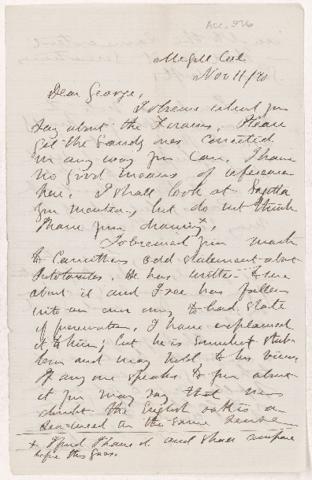 Acc. 926
McGill Coll
Nov 11/70
Dear George,
I observe what you
say about the Please
get the Sandy ones corrected
in any way you can. I have
no good means of reference
here. I shall look at Sagitta
you mention, but do not think
I have your drawing x.
I observed you
to Carruthers odd statement about
Prototaxites. He has written to me
about it and I see has fallen
into an error owing to bad state
of preservation. I have explained
it to him; but he is somewhat stub-
born and may hold to his views.
If any one speaks to you about
it you may say that
doubt the English
the same
x I find I have it and shall compare
before this goes.